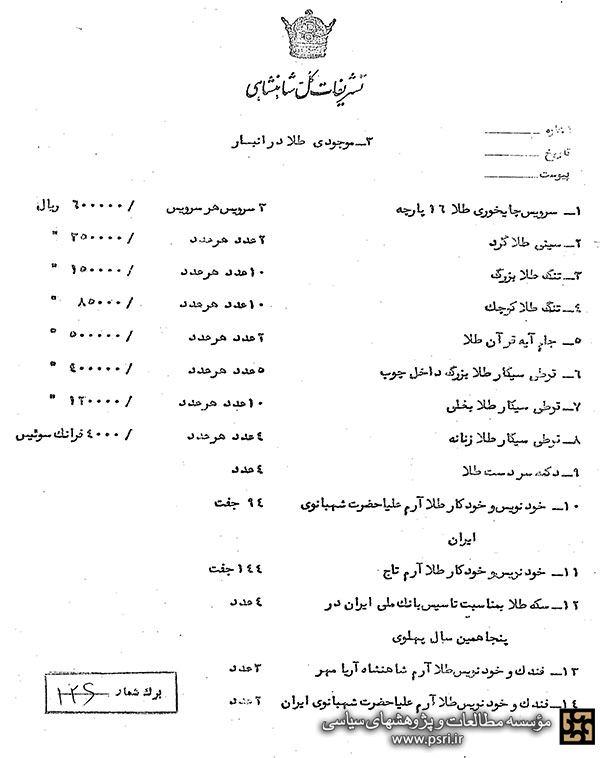 تشریفات کل شاهنشاهی
شماره
تاریخ
پیوست
۳ــ موجودی طلا در انبار
۱ــ سرویس چایخوری طلا ۱۶ پارچه ۳ سرویس هر سرویس /۶۰۰۰۰۰ ریال
۲ــ سینی طلا گرد ۲ عدد هر عدد /۳۵۰۰۰۰ "
۳ــ تنگ طلا بزرگ ۱۰ عدد هر عدد /۱۵۰۰۰۰ "
۴ــ تنگ طلا کوچک ۱۰ عدد هر عدد /۸۵۰۰۰ "
۵ــ جای آیه قرآن طلا ۲ عدد هر عدد /۵۰۰۰۰۰ "
۶ــ قوطی سیگار طلا بزرگ داخل چوب ۵ عدد هر عدد /۴۰۰۰۰۰ "
۷ــ قوطی سیگار طلا بغلی ۱۰ عدد هر عدد /۱۲۰۰۰۰ "
۸ــ قوطی سیگار طلا زنانه ۴ عدد هر عدد /۴۰۰۰ فرانک سوئیس
۹ــ دکمه سر دست طلا ۴ عدد
۱۰ــ خودنویس و خودکار طلا آرم علیاحضرت شهبانوی ۹۴ جفت
ایران
۱۱ــ خودنویس و خودکار طلا آرم تاج ۱۴۴ جفت
۱۲ــ سکه طلا بمناسبت تاسیس بانک ملی ایران در ۴ عدد
پنجاهمین سال پهلوی
۱۳ــ فندک و خودنویس طلا آرم شاهنشاه آریا مهر ۳ عدد
۱۴ــ فندک و خودنویس طلا آرم علیاحضرت شهبانوی ایران ۲ عدد
برگ شمار ۱۲۶
مؤسسه مطالعات و پژوهشهای سیاسی
www.psri.ir